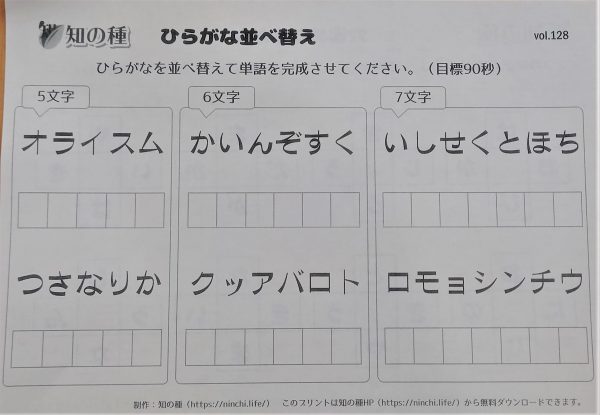 知の種 ひらがな並べ替え vol.128
ひらがなを並べ替えて単語を完成させてください。（目標90秒）
5文字 6文字 7文字
オライスム かいんぞすく いしせくとほち
つさなりか クッアバロト ロモョシンチウ
制作：知の種（https://ninchi.life/） このプリントは知の種HP（https://ninchi.life/）から無料ダウンロードできます。